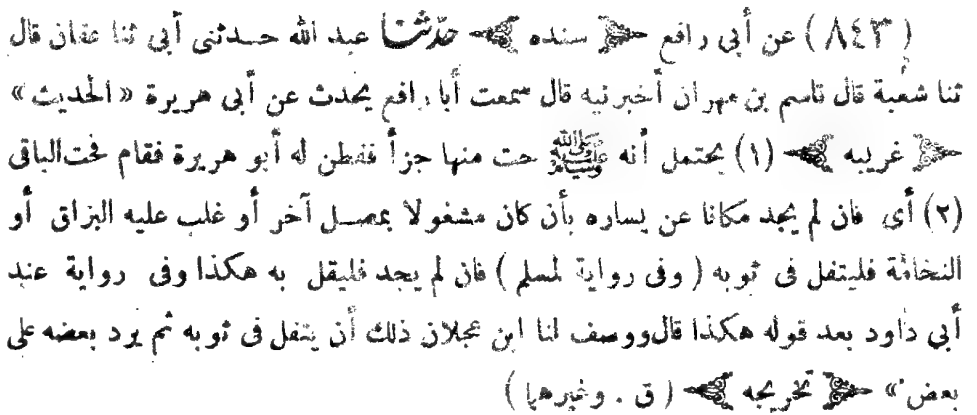 ( ٨٤٣ ) عن أبى رافع ﴿ سنده ﴾ حدّثنا عبد الله حدثنى أبى ثنا عفان قال
ثنا شعبة قال قاسم بن مهران أخبرنيه قال سمعت أبا رافع يحدث عن أبى هريرة « الحديث »
﴿ غريبه ﴾ (١) يحتمل أنه ﷺ حت منها جزأ ففطن له أبو هريرة فقام فحت الباقى
(٢) أى فان لم يجد مكانا عن يساره بأن كان مشغولا بمصل آخر أو غلب عليه البزاق أو
النخامة فليتفل فى ثوبه ( وفى رواية لمسلم ) فان لم يجد فليقل به هكذا وفى رواية عند
أبى داود بعد قوله هكذا قال ووصف لنا ابن عجلان ذلك أن يتفل فى ثوبه ثم يرد بعضه على
بعض» ﴿ تخريجه ﴾ ( ق . وغيرهما )